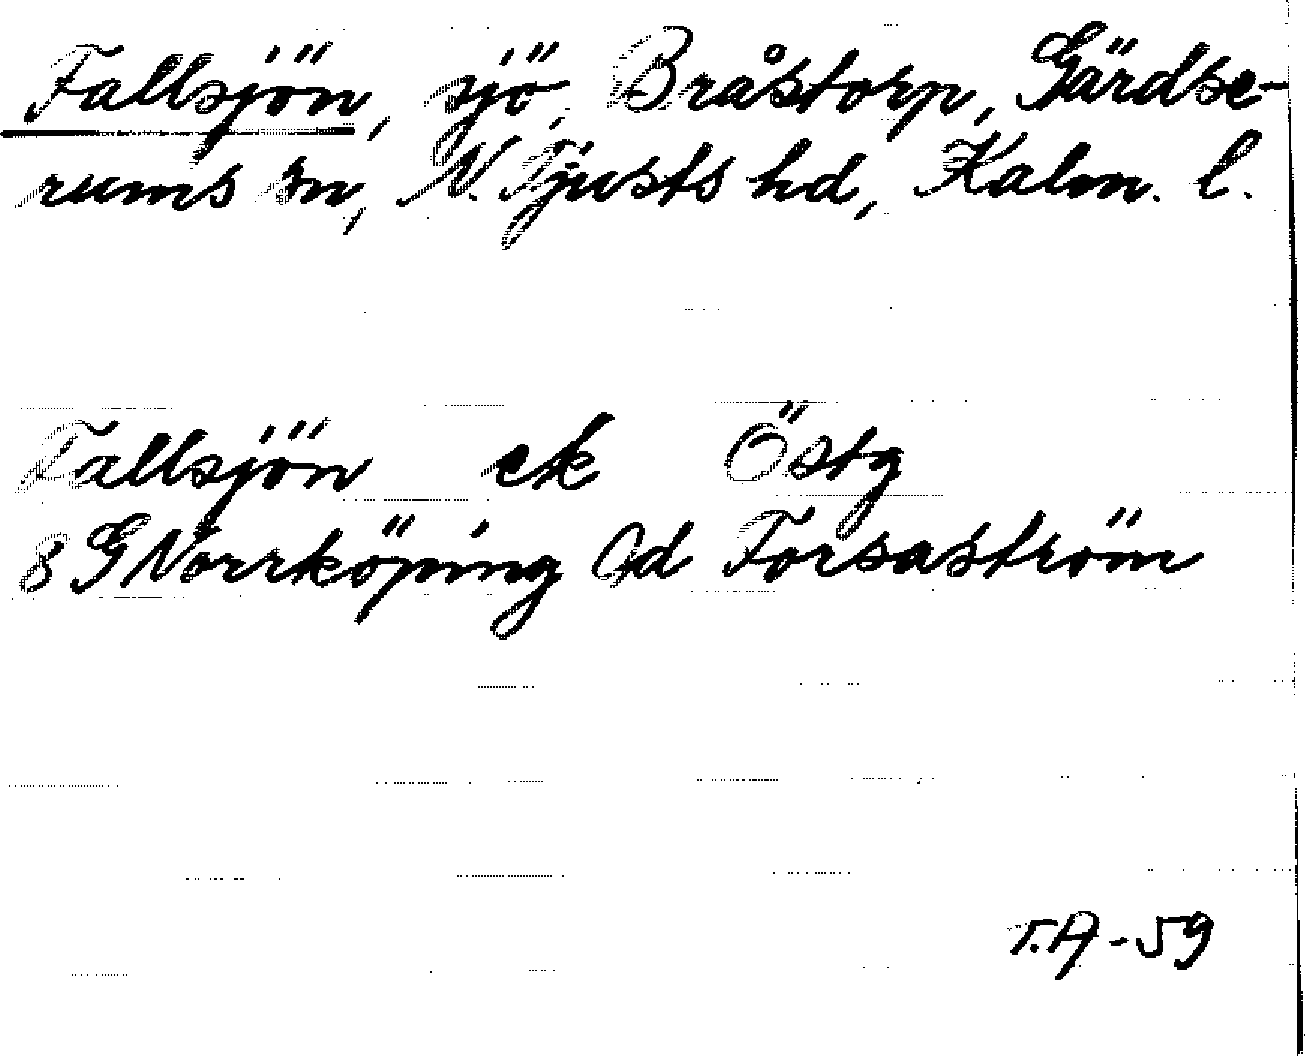 Fallsjön, sjö, Bråstorp, Gärdse-
rums sn, N. Tjusts hd, Kalm. l.
Fallsjön ek Östg
8 G Norrköping Öd Forsaström
T.A-59